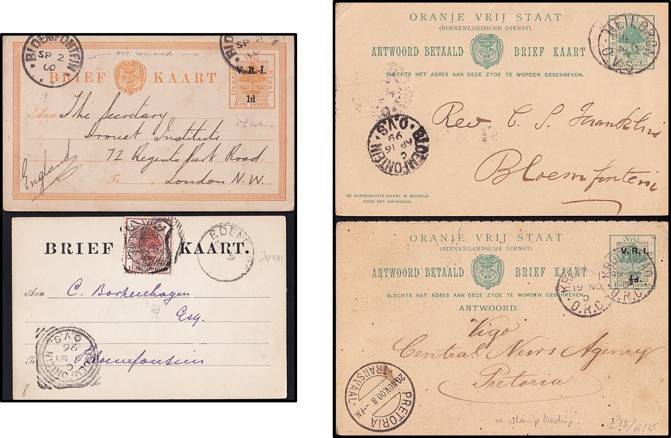 BLOEMFONTEIN
SP 2
00
BRIEF KAART
V.R.I.
1d
Aan The Secretary
Drouet Institute
72 Regents Park Road
To London N.W.
England
BRIEF KAART.
EDEN
Aan C. Borckenhagen
Esq.
Bloemfontein
BLOEMFONTEIN
MY
96
O.V.S.
8
ORANJE VRIJ STAAT
(BINNENLANDSCHE DIENST)
ANTWOORD BETAALD BRIEF KAART
SLECHTS HET ADRES AAN DEZE ZYDE TE WORDEN GESCHREVEN.
HEILBRON
O.V.S.
BLOEMFONTEIN
C
AP 16
99
O.V.S.
Rev C. S. Franklin
Bloemfontein
DE AANGEHECHTE KAART IS BEDOELD
VOOR HET ANTWOORD.
ORANJE VRIJ STAAT
(BINNENLANDSCHE DIENST)
ANTWOORD BETAALD BRIEF KAART
SLECHTS HET ADRES AAN DEZE ZYDE TE WORDEN GESCHREVEN.
ANTWOORD.
V.R.I.
½d.
19 NO
O.R.C.
O.R.C.
Vigo
Central News Agency
Pretoria
PRETORIA
20 NOV 00 8-PM
TRANSVAAL